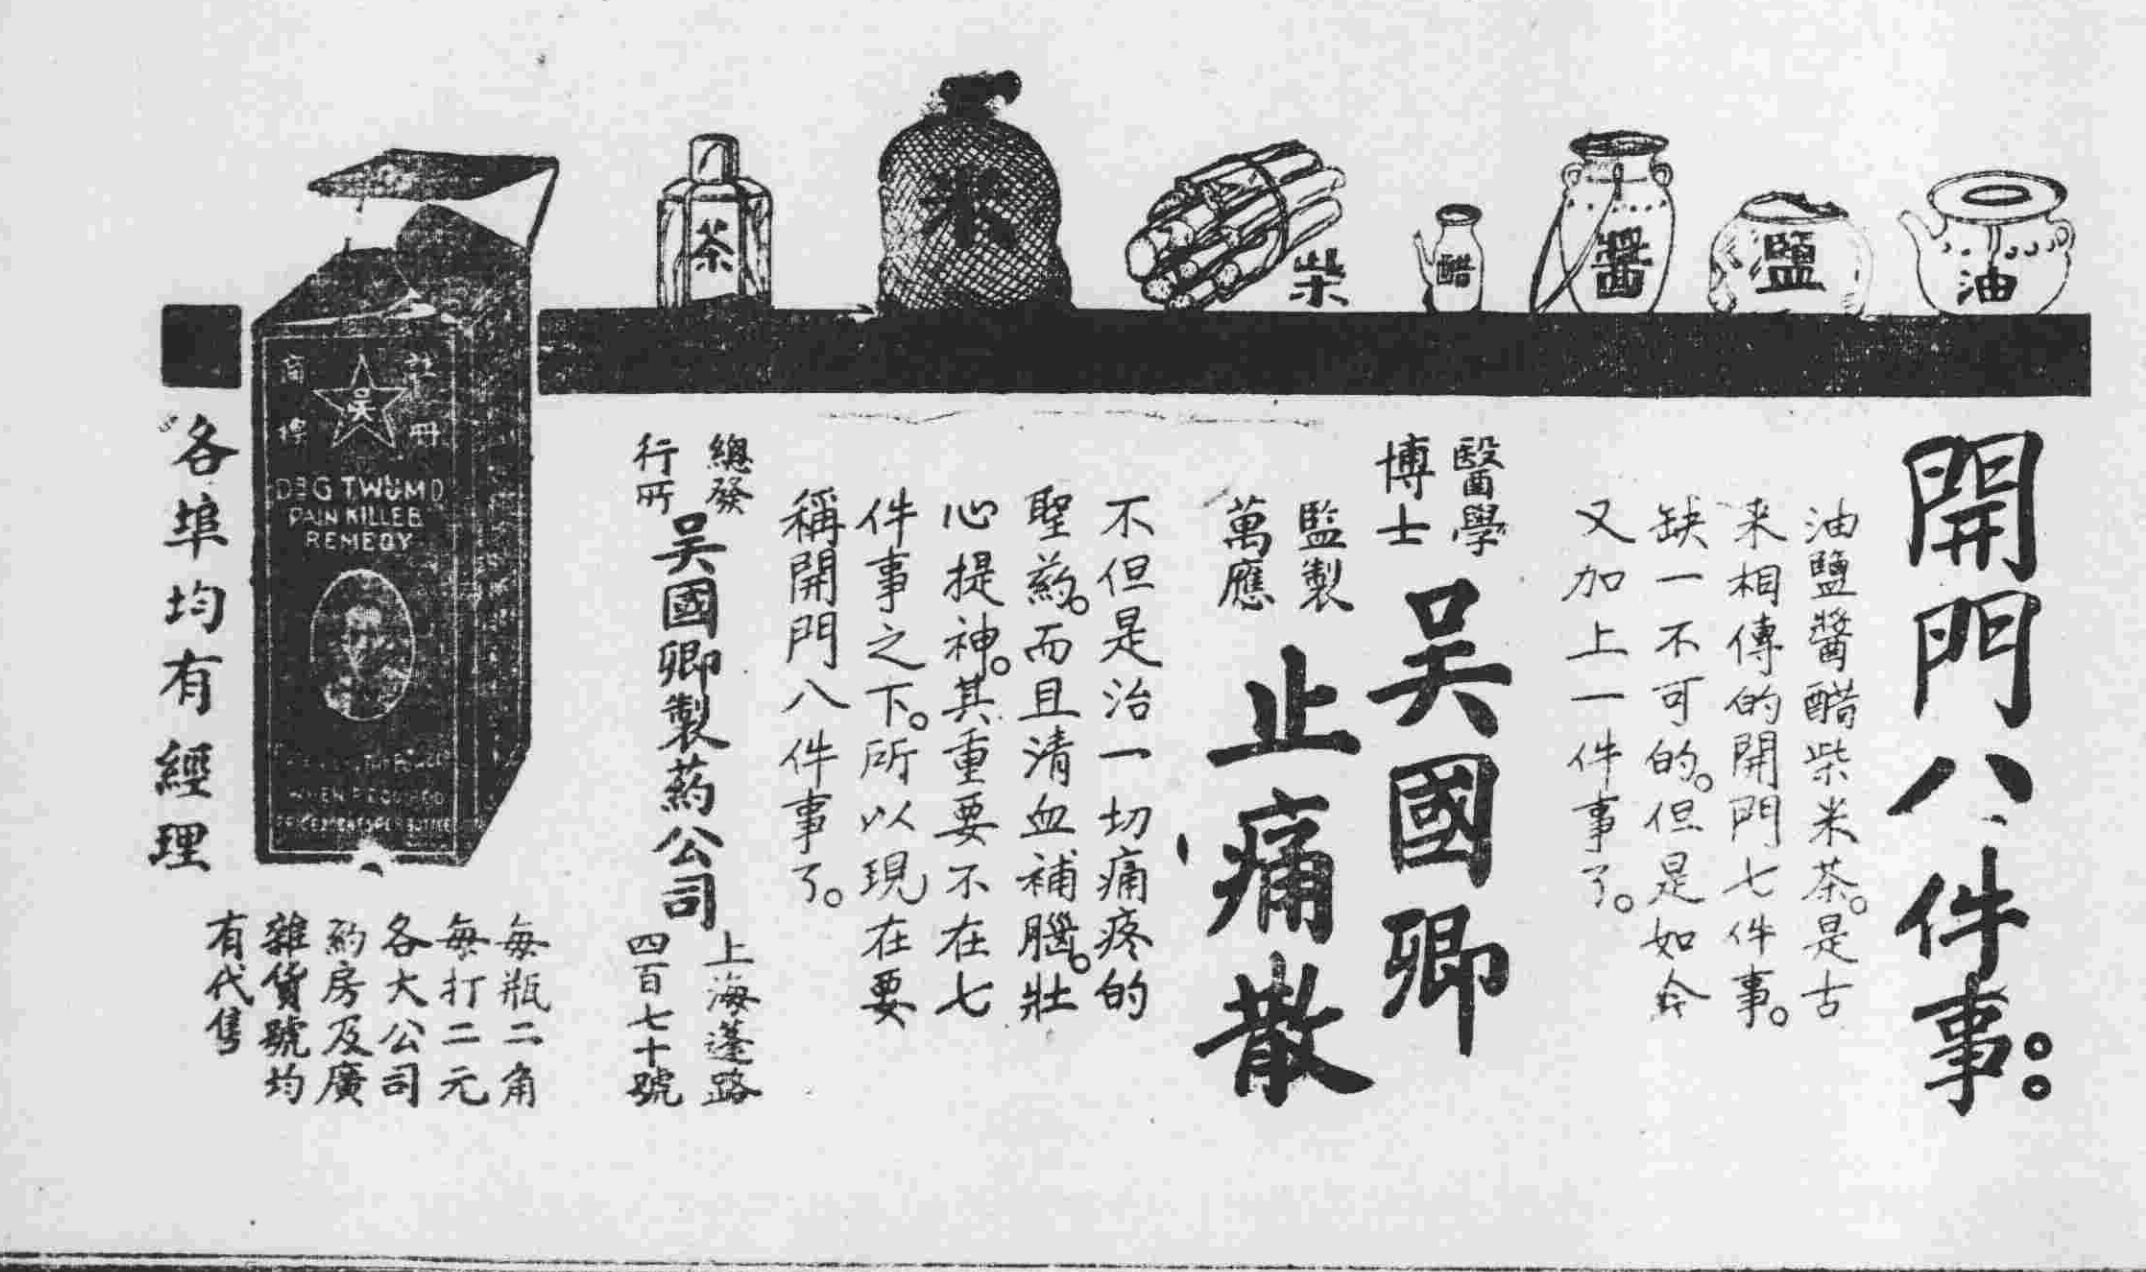 油
鹽
醬
醋
柴
米
茶
開門八件事:
油鹽醬醋柴米茶。是古
来相傳的開門七件事。
缺一不可的。但是如今
又加上一件事了。
醫學
博士
吳國卿
監製
萬應
止痛散
不但是治一切痛疼的
聖葯。而且清血補腦。壯
心提神。其重要不在七
件事之下。所以現在要
稱開門八件事了。
總發
行所
吳國卿製葯公司
上海蓬路
四百七十號
註冊
商標
吳
DR G.T.WÜ M D
PAIN KILLER
REMEDY
WHEN REQUIRED
每瓶二角
每打二元
各大公司
葯房及廣
雜貨號均
有代售
各埠均有經理